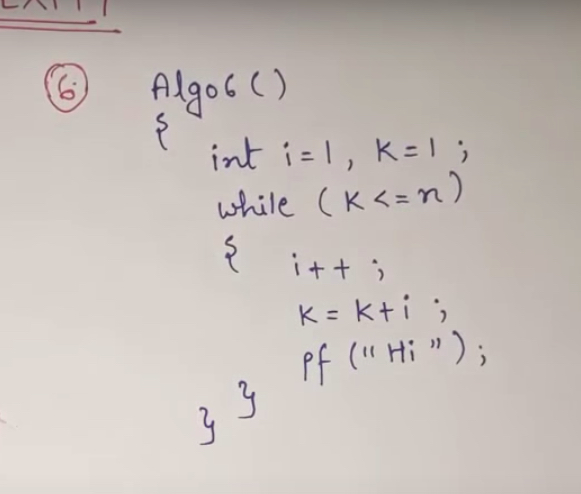 6
Algo6 ( )
{
int i = 1, K = 1 ;
while ( K <= n )
{ i + + ;
K = K + i ;
Pf ( " Hi " ) ;
}
}